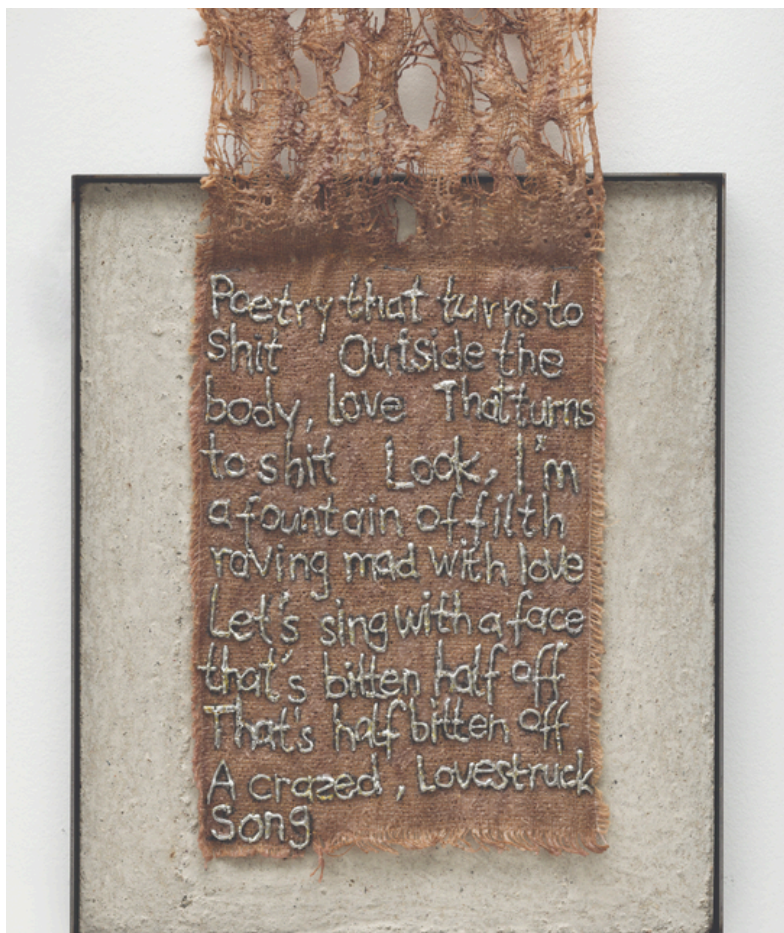 Poetry that turns to
shit Outside the
body, love That turns
to shit Look, I'm
a fountain of filth
raving mad with love
Let's sing with a face
that's bitten half off
That's half bitten off
A crazed, Lovestruck
Song